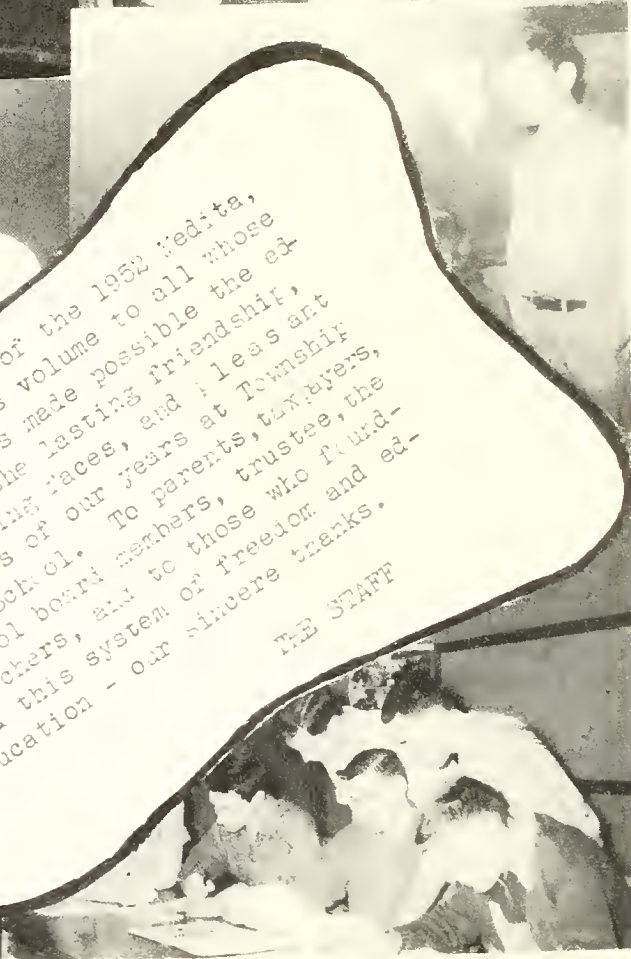 of the 1952 Medita,
s volume to all whose
s made possible the ed-
the lasting friendship,
ing faces, and pleasant
s of our years at Township
school. To parents, taxpayers,
ol board members, trustee, the
chers, and to those who found-
this system of freedom and ed-
ucation - our sincere thanks.
THE STAFF